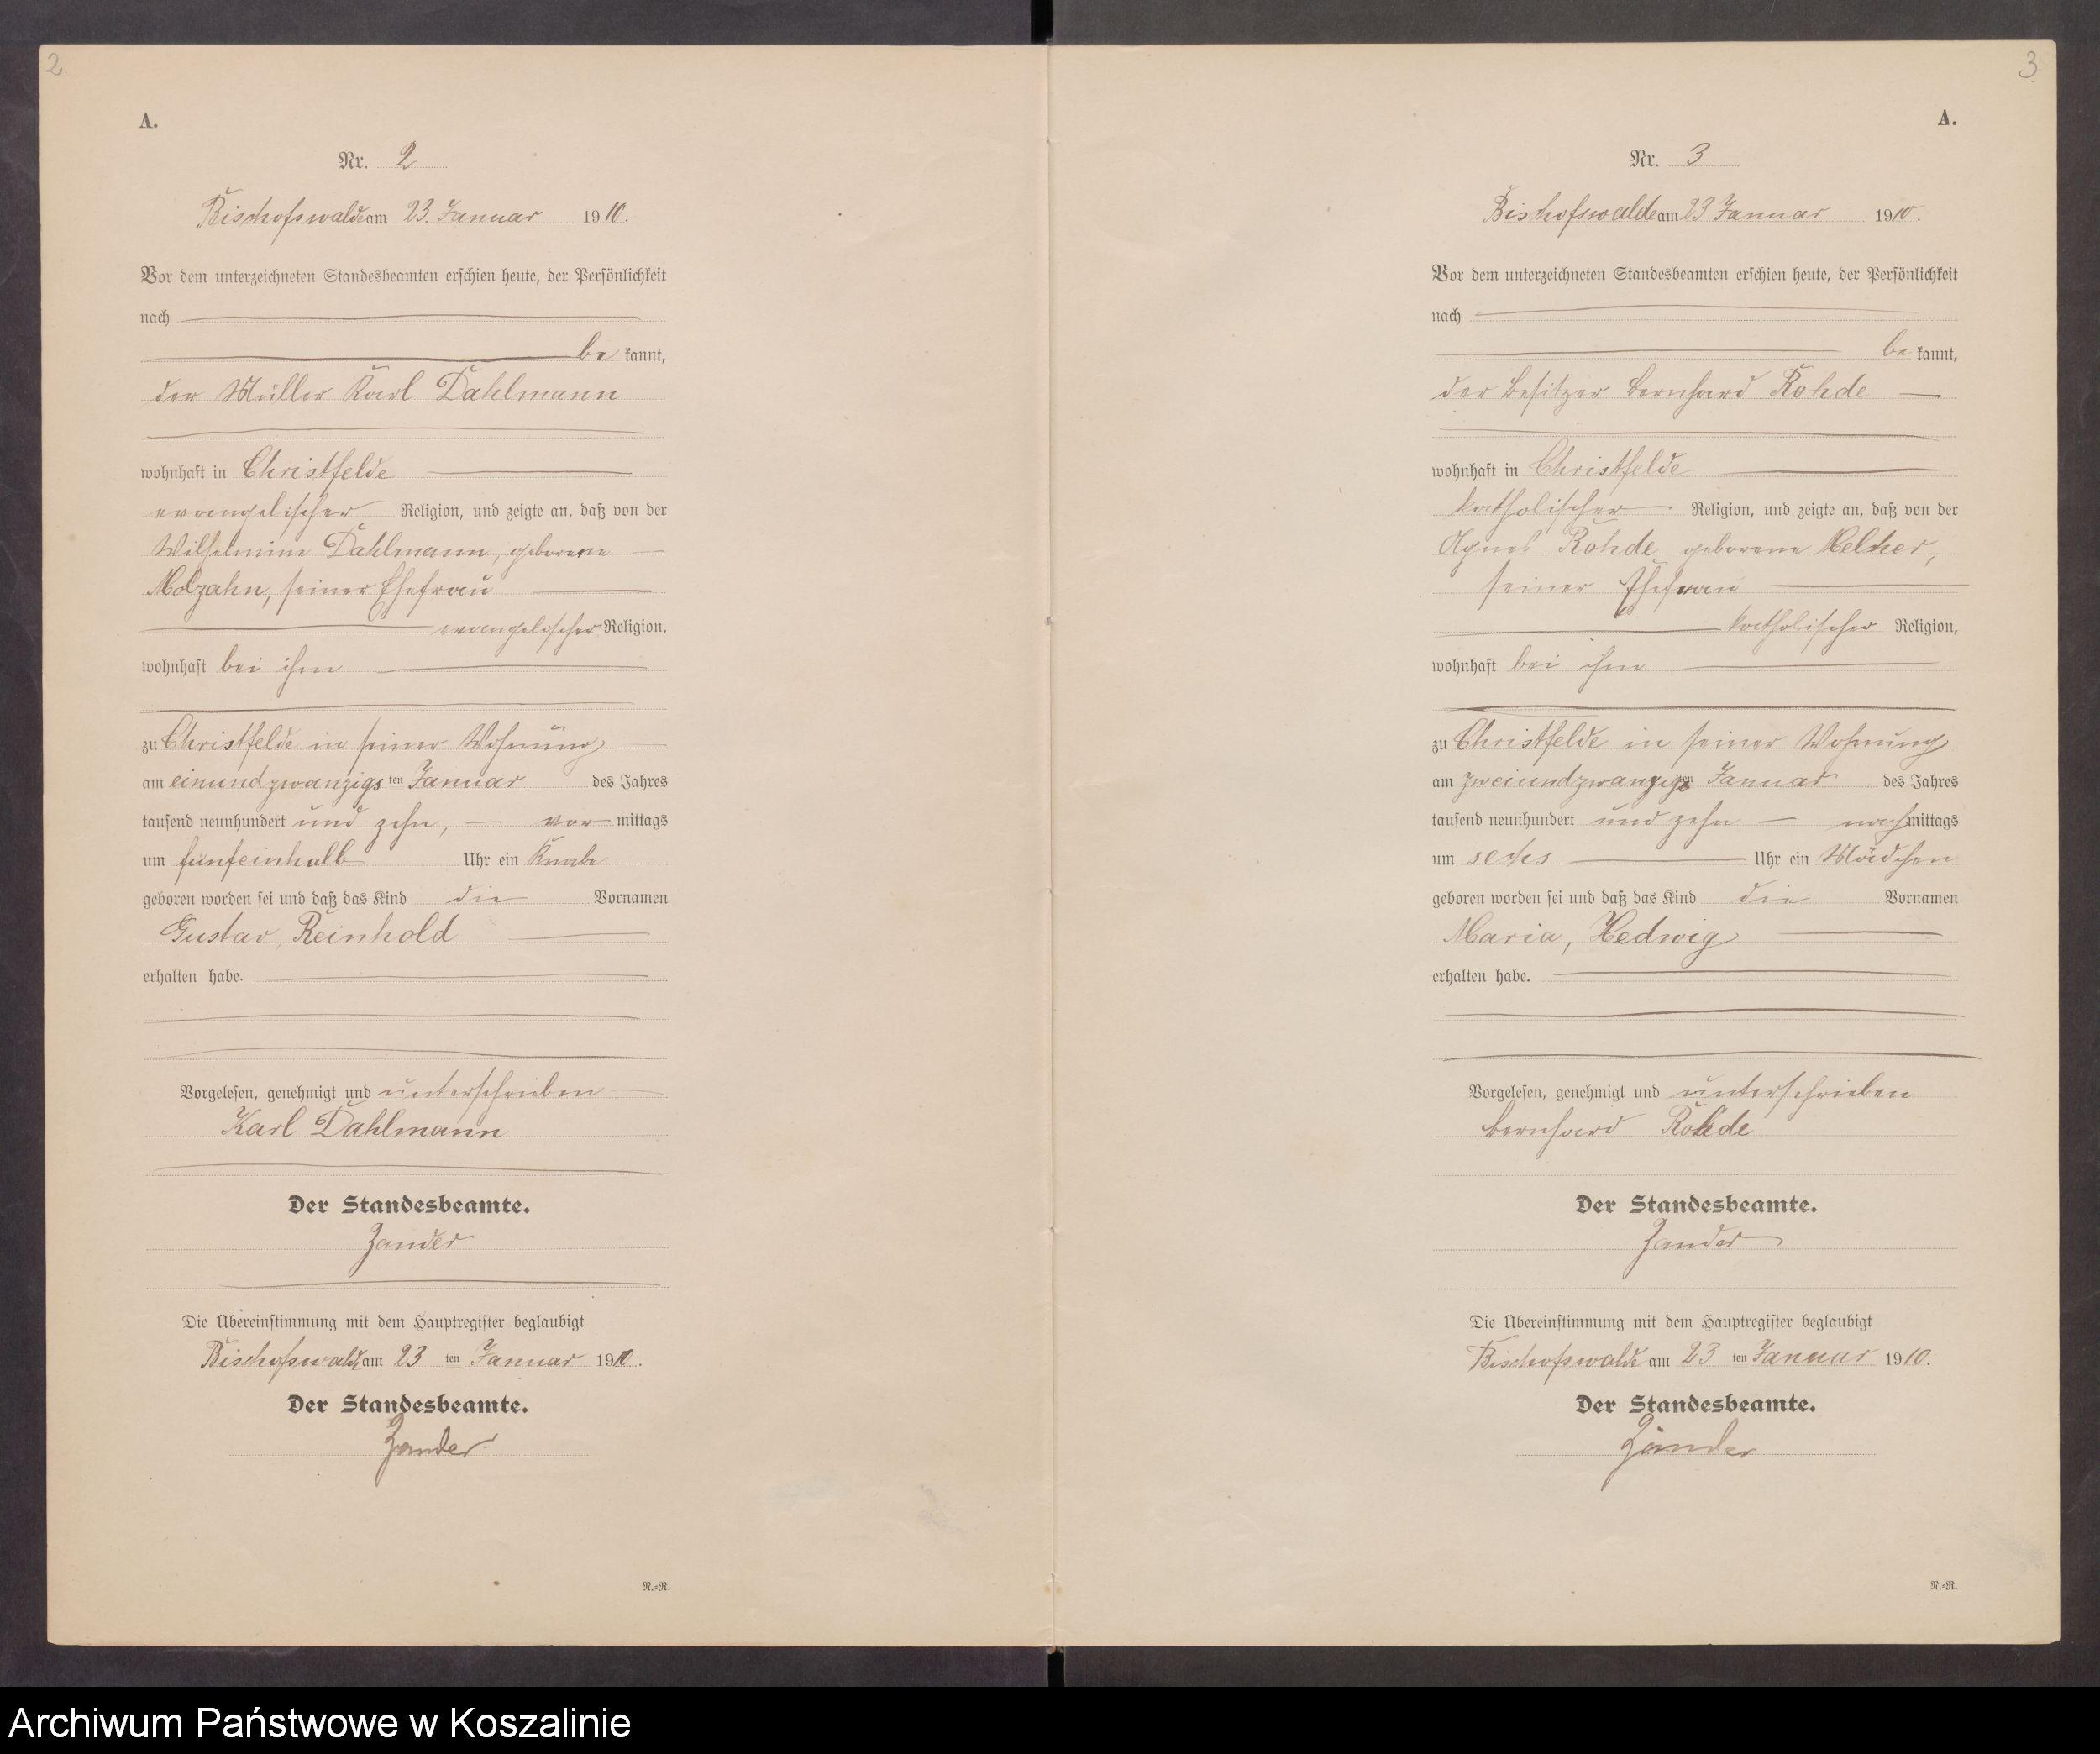 2
A.
Nr. 2
Bischofswalde am 23. Januar 1910.
Vor dem unterzeichneten Standesbeamten erschien heute, der Persönlichkeit
nach
be kannt,
der Müller Karl Dahlmann
wohnhaft in Christfelde
evangelischer Religion, und zeigte an, daß von der
Wilhelmine Dahlmann, geborene
Molzahn, seiner Ehefrau
evangelischer Religion,
wohnhaft bei ihm
zu Christfelde in seiner Wohnung
am einundzwanzigsten Januar des Jahres
tausend neunhundert und zehn, vormittags
um fünfeinhalb Uhr ein Knabe
geboren worden sei und daß das Kind die Vornamen
Gustav, Reinhold
erhalten habe.
Vorgelesen, genehmigt und unterschrieben
Karl Dahlmann
Der Standesbeamte.
Zander
Die Übereinstimmung mit dem Hauptregister beglaubigt
Bischofswalde am 23 ten Januar 1910.
Der Standesbeamte.
Zander
R.=R.
3
A.
Nr. 3
Bishofswalde am 23 Januar 1910.
Vor dem unterzeichneten Standesbeamten erschien heute, der Persönlichkeit
nach
be kannt,
der Besitzer Bernhard Rohde
wohnhaft in Christfelde
katholischer Religion, und zeigte an, daß von der
Agnes Rohde geborene
seiner Ehefrau
katholischer Religion,
wohnhaft bei ihm
zu Christfelde in seiner Wohnung
am zweiundzwanzigsten Januar des Jahres
tausend neunhundert und zehn nachmittags
um sechs Uhr ein Mädchen
geboren worden sei und daß das Kind die Vornamen
Maria, Hedwig
erhalten habe.
Vorgelesen, genehmigt und unterschrieben
Bernhard Rohde
Der Standesbeamte.
Zander
Die Übereinstimmung mit dem Hauptregister beglaubigt
Bischofswalde am 23 ten Januar 1910.
Der Standesbeamte.
Zander
R.=R.
Archiwum Państwowe w Koszalinie